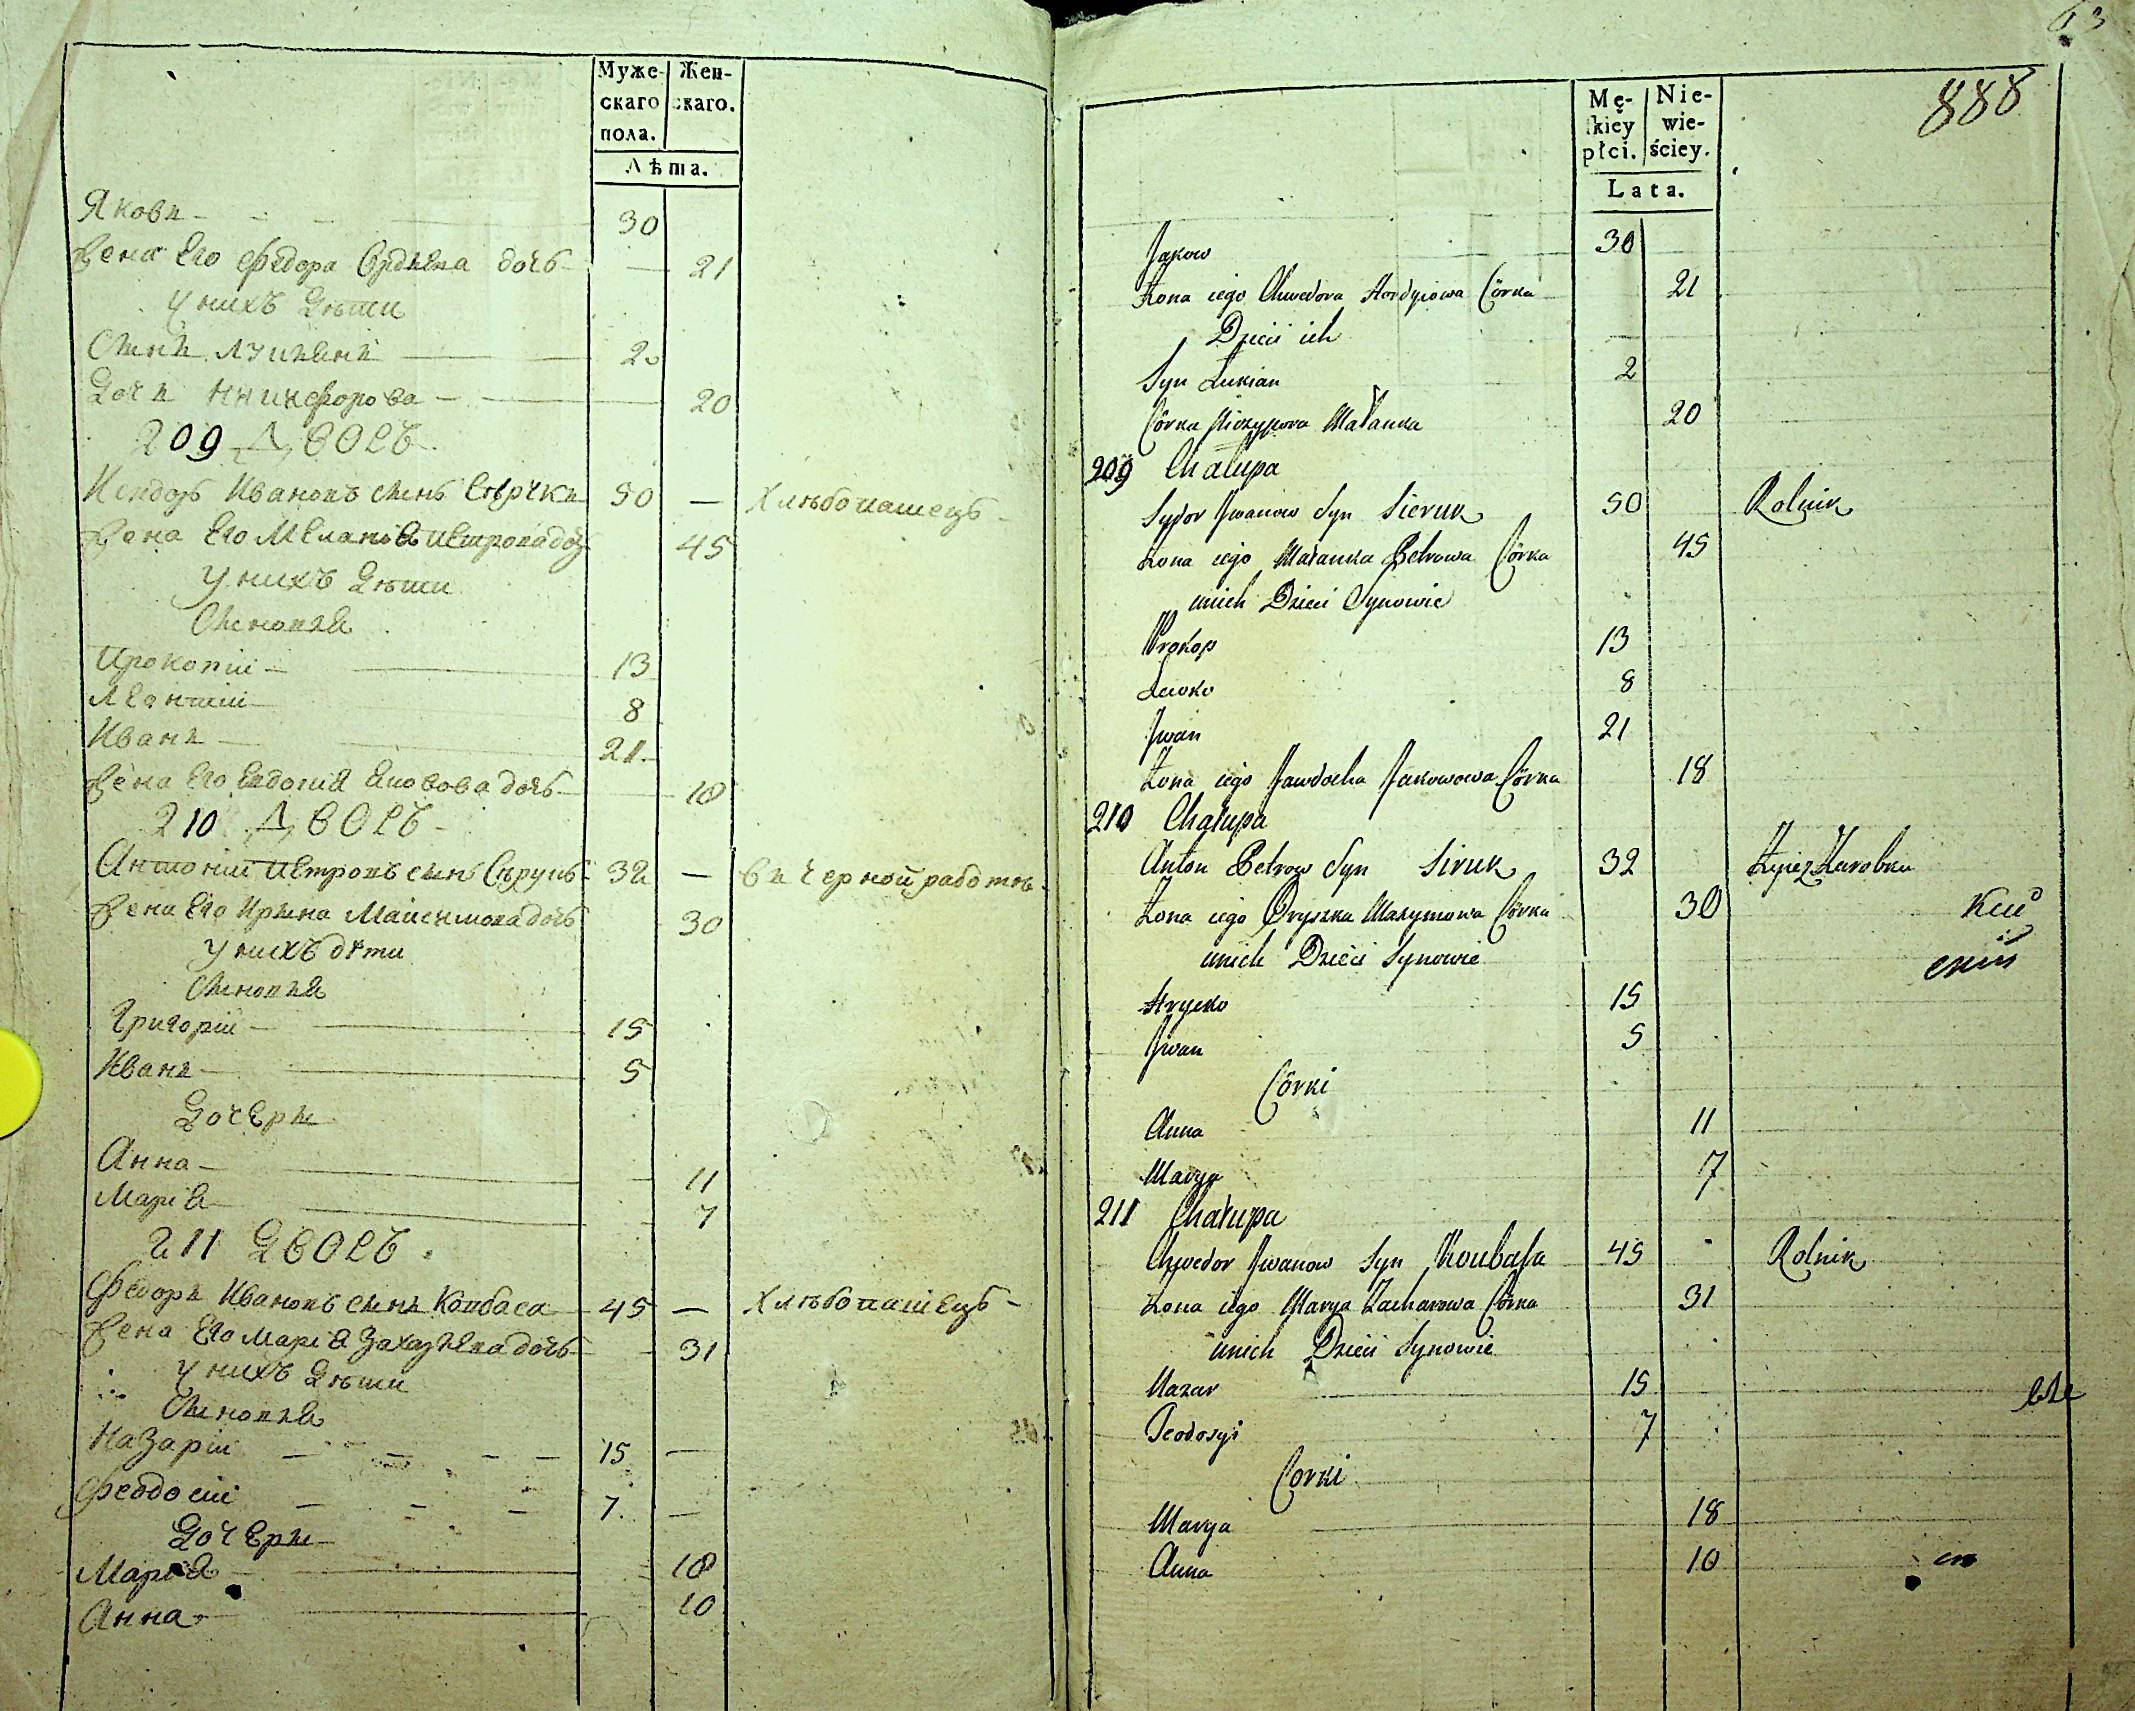 Муже-
скаго
пола.
Жен-
скаго.
Лѣта.
Яковъ 30
Жена Его Ѳедора дочь 21
У нихъ Дѣти
Сынъ Лукіянъ 2
Дочь Никифорова 20
209 Дворъ
Исидоръ Ивановъ сынъ 50 — Хлѣбопашецъ
Жена Его Меланія Петрова дочь 45
У нихъ Дѣти
Сыновья
Прокопій 13
Леонтій 8
Иванъ 21
Жена Его Евдокія Яковова дочь 18
210 Дворъ
Антоній Петровъ сынъ Сѣрукъ 32 — въ черной работѣ
Жена Его Ирина Максимова дочь 30
У нихъ дѣти
Сыновья
Григорій 15
Иванъ 5
Дочери
Анна 11
Марія 7
211 Дворъ
Ѳедоръ Ивановъ сынъ Ковбаса 45 — Хлѣбопашецъ
Жена Его Марія Захарѣева дочь 31
У нихъ Дѣти
Сыновья
Назарій 15 —
Ѳеодосій 7 —
Дочери
Марія 18
Анна 10
63
888
Mę-
ſkiey
płci.
Nie-
wie-
ściey.
Lata.
Jakow 30
Żona iego Chwedora Hordyiowa Córka 21
Dzieci ich
Syn Łukian 2
Córka Niczypora Małanka 20
209 Chałupa
Sydor Iwanow Syn Sieruk 50 Rolnik
Żona iego Małanka Petrowa Córka 45
unich Dzieci Synowie
Prokop 13
Lewko 8
Iwan 21
Żona iego Jawdocha Jakowowa Córka 18
210 Chałupa
Anton Petrow Syn Siruk 32 Żyie z Zarobku
Żona iego Oryszka Maxymowa Córka 30
unich Dzieci Synowie
Hryćko 15
Iwan 5
Córki
Anna 11
Marya 7
211 Chałupa
Chwedor Iwanow Syn Koubasa 45 Rolnik
Żona iego Marya Zacharowa Córka 31
unich Dzieci Synowie
Nazar 15
Teodosyi 7
Corki
Marya 18
Anna 10